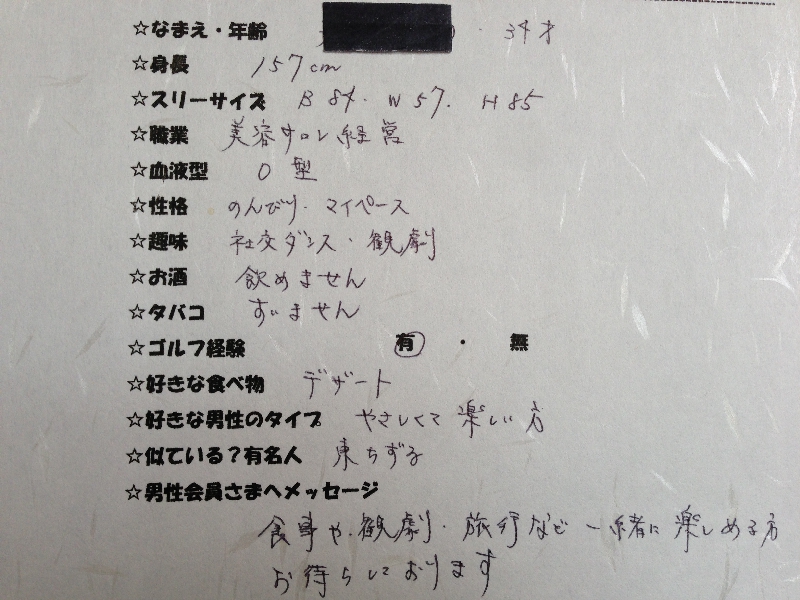 ☆なまえ・年齢 ・34才
☆身長 157cm
☆スリーサイズ B84. W57. H85
☆職業 美容サロン経営
☆血液型 O型
☆性格 のんびり・マイペース
☆趣味 社交ダンス・観劇
☆お酒 飲めません
☆タバコ すいません
☆ゴルフ経験 有・無
☆好きな食べ物 デザート
☆好きな男性のタイプ やさしくて楽しい方
☆似ている？有名人 東ちずる
☆男性会員さまへメッセージ
食事や、観劇・旅行など一緒に楽しめる方
お待ちしております